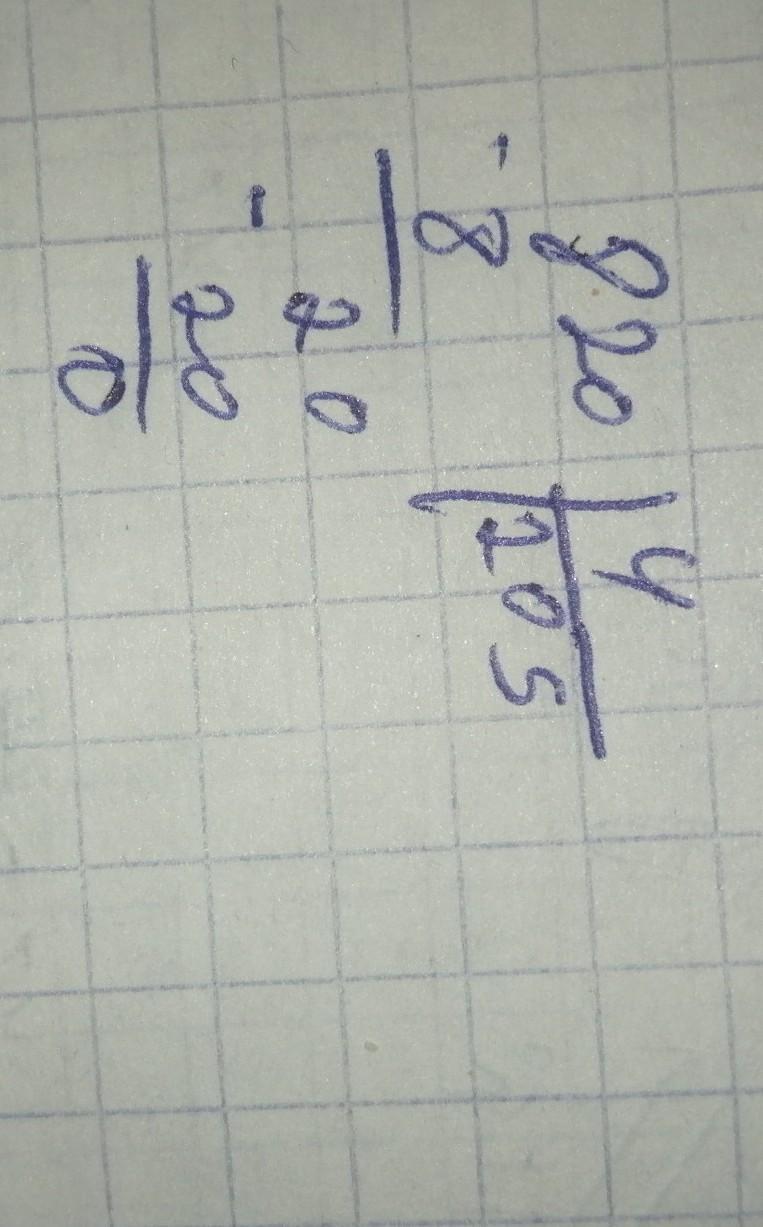 820 | 4
- 8 | 205
20
- 20
0